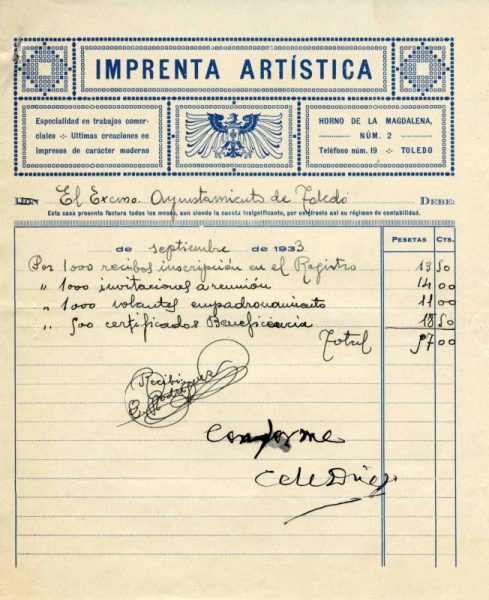 IMPRENTA ARTÍSTICA
Especialidad en trabajos comer-
ciales -:- Ultimas creaciones en
impresos de carácter moderno
HORNO DE LA MAGDALENA,
NÚM. 2
Teléfono núm. 19 -:- TOLEDO
El Excmo. Ayuntamiento de Toledo DEBE:
Esta casa presenta factura todos los meses, aun siendo la cuenta insignificante, por exigírselo así su régimen de contabilidad.
de septiembre de 1933
PESETAS CTS.
Por 1000 recibos inscripción en el Registro 13 50
" 1000 invitaciones a reunión 14 00
" 1000 volantes empadronamiento 11 00
" 500 certificados Beneficencia 18 50
Total 57 00
Recibí
E. Rodríguez
Conforme